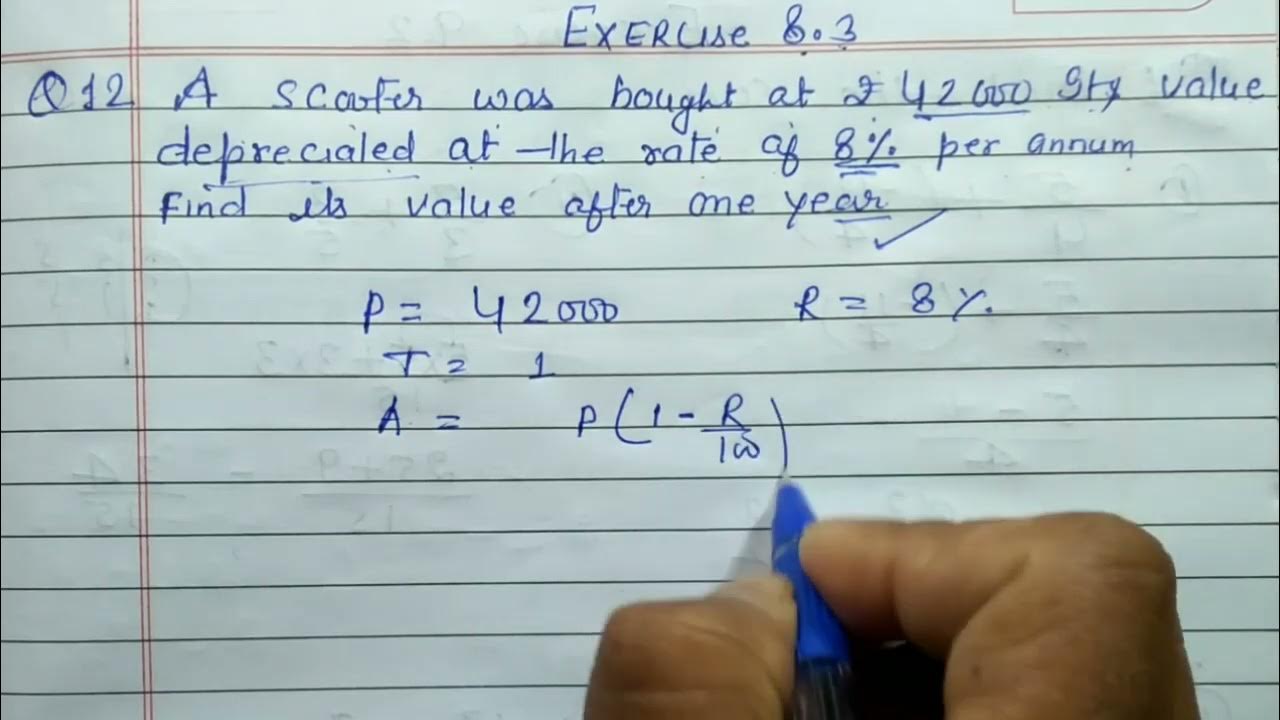 EXERCISE 8.3
Q12 A scooter was bought at ₹ 42000 Its value
depreciated at the rate of 8% per annum
Find its value after one year
P = 42000 R = 8 %.
T = 1
A = P(1 - R/100)